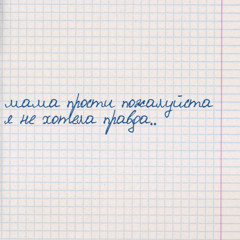 мама прости пожалуйста
я не хотела правда..